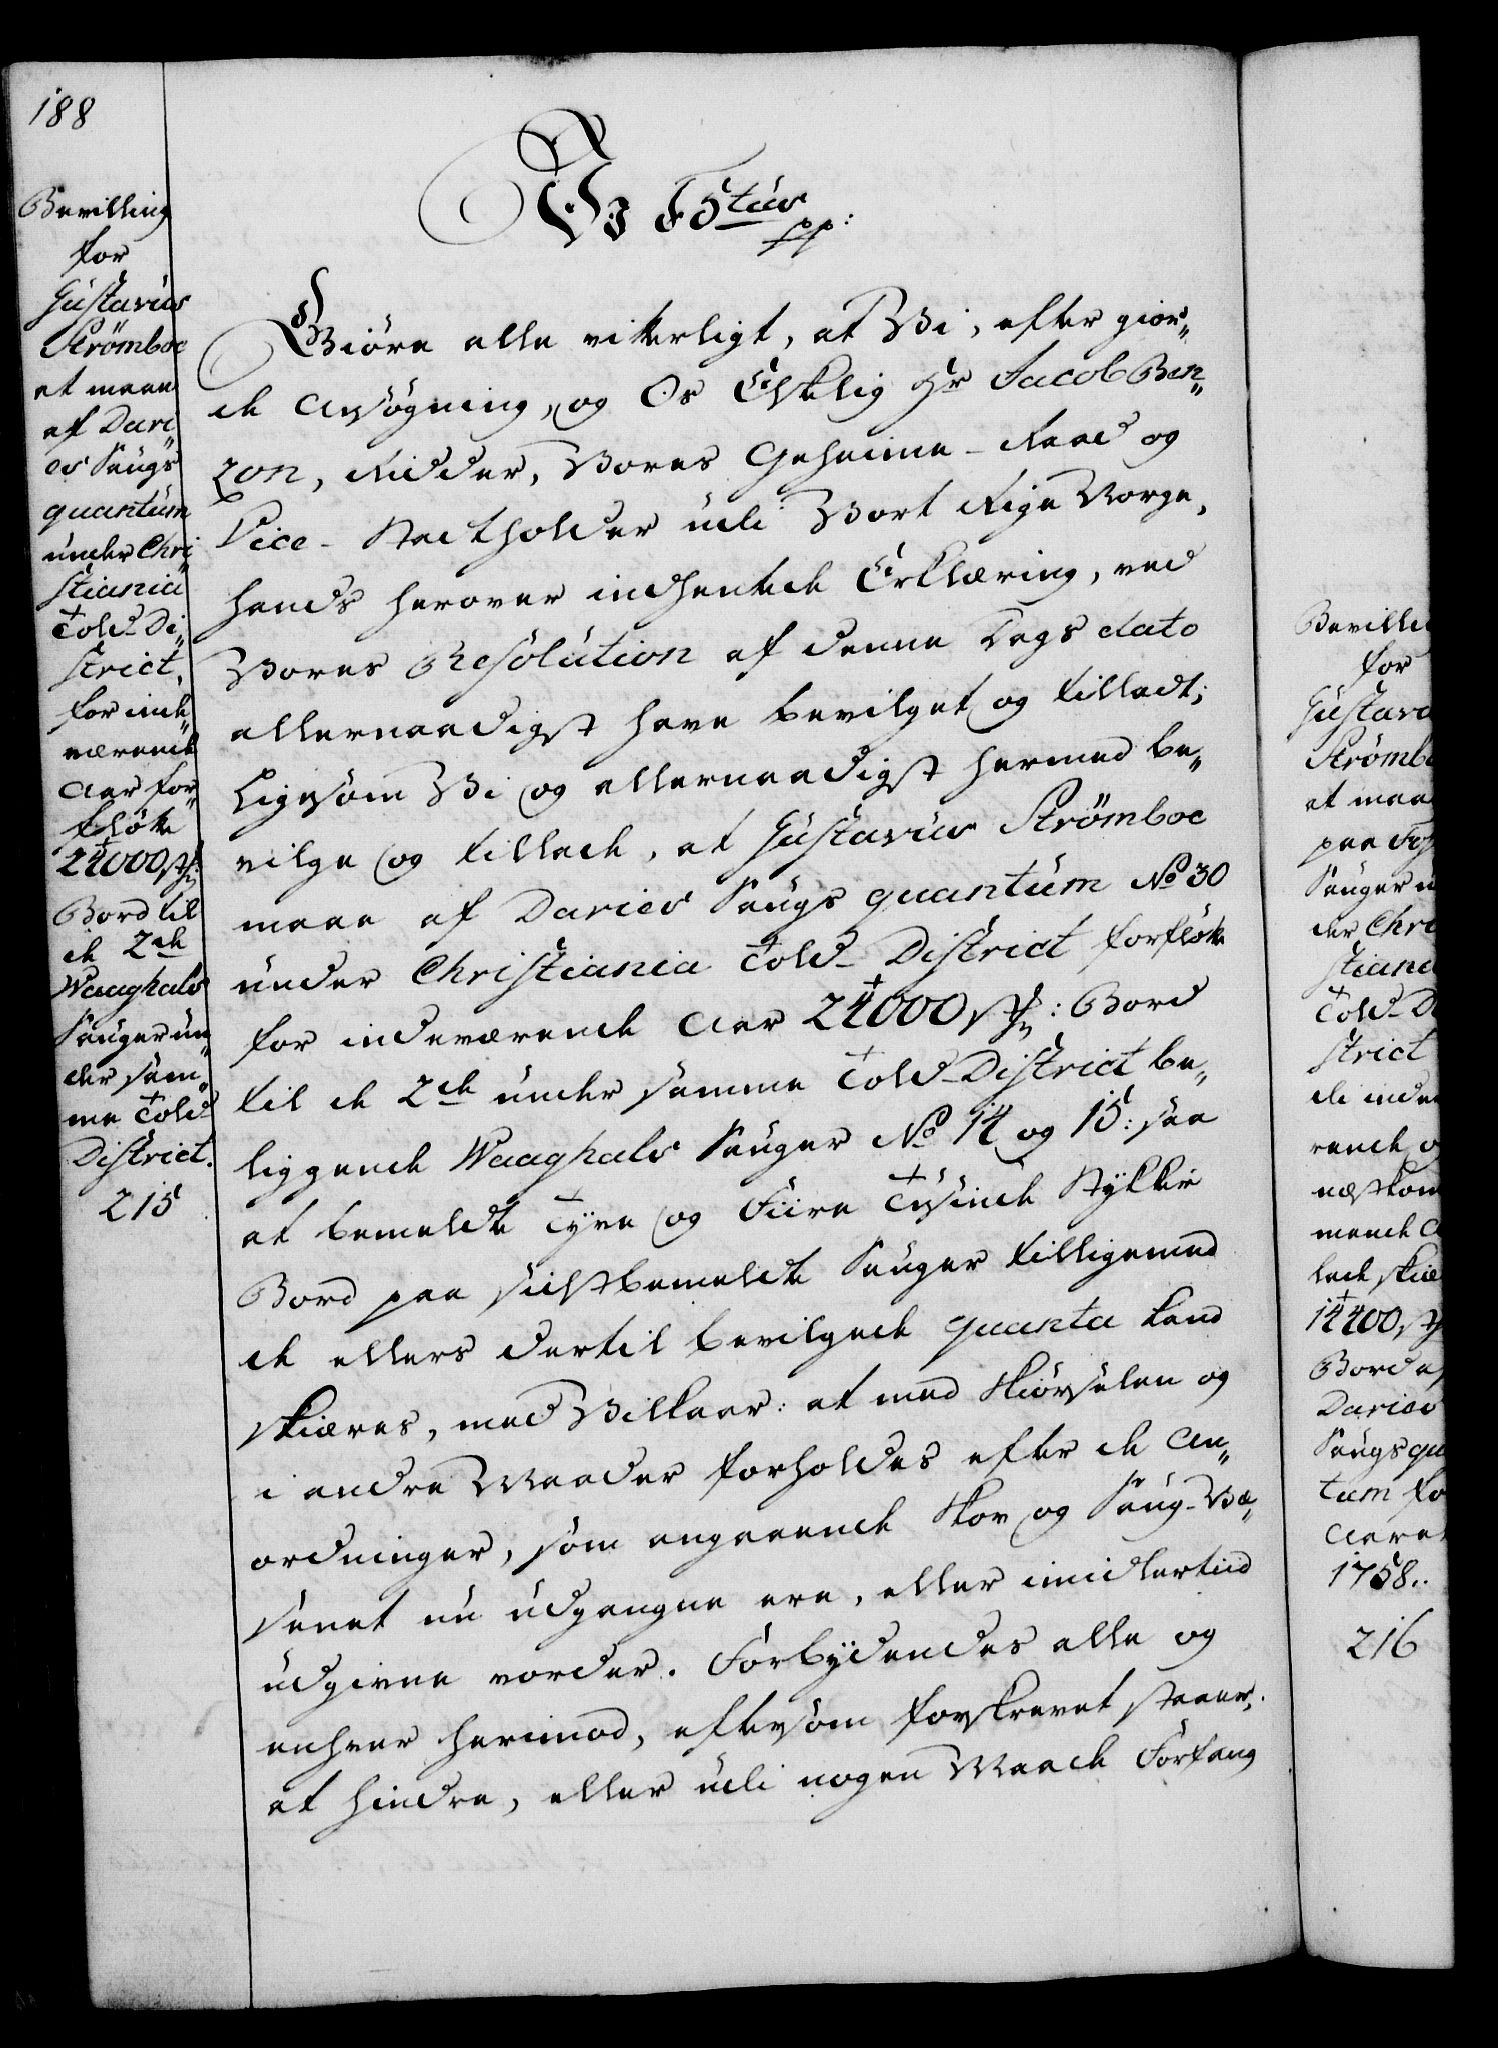 188
Bevilling
for
Gustavus
Strömboe
at maae
af Dari„
es Saugs
quantum
under Chri„
stiania
Told-Di„
strict,
for inde„
værende
Aar for„
flötte
24000 st:
Bord til
de 2de
Waaghals
Sauger un„
der sam„
me Told
District.
215
Vi F5tus
pp:
Giöre alle vitterligt, at Vi, efter gior„
de Ansögning, og Os Elskelig Hr Jacob Ben„
zon, Ridder, Vores Geheime-Raad og
Vice-Stadtholder udi Vort Rige Norge,
hands herover indhentede Erklæring, ved
Vores Resolution af denne Dags dato
allernaadigst have bevilget og tilladt;
Ligesom Vi og allernaadigst hermed be„
vilge og tillade, at Gustavus Strömboe
maae af Daries Saugs quantum No 30
under Christiania Told-District forflötte
for indeværende Aar 24000 st: Bord
til de 2de under samme Told-District be„
liggende Waaghals Sauger No 14 og 15: saa
at bemeldte Tyve og Fiire Tusinde Stykker
Bord paa sidstbemeldte Sauger tilligemed
de ellers dertil bevilgede quanta kand
skiæres, med Vilkaar: at med Skiörselen og
i andre Maader forholdes efter de An„
ordninger, som angaaende Skov og Saug-Væ„
senet nu udgangne ere, eller imidlertiid
udgivne vorder. Forbydendes alle og
enhver herimod, eftersom forskrevet staaer,
at hindre, eller udi nogen Maade Forfang
Bevilli
for
Gustav
Strömb
at maa
paa
Sauger u
der Chri
stiania
Told-D
strict
di inde
rende o
næstkom
mende A
lade skiæ
14400 st
Bord af
Daries
Saugs qu
tum fo
Aare
1758..
216